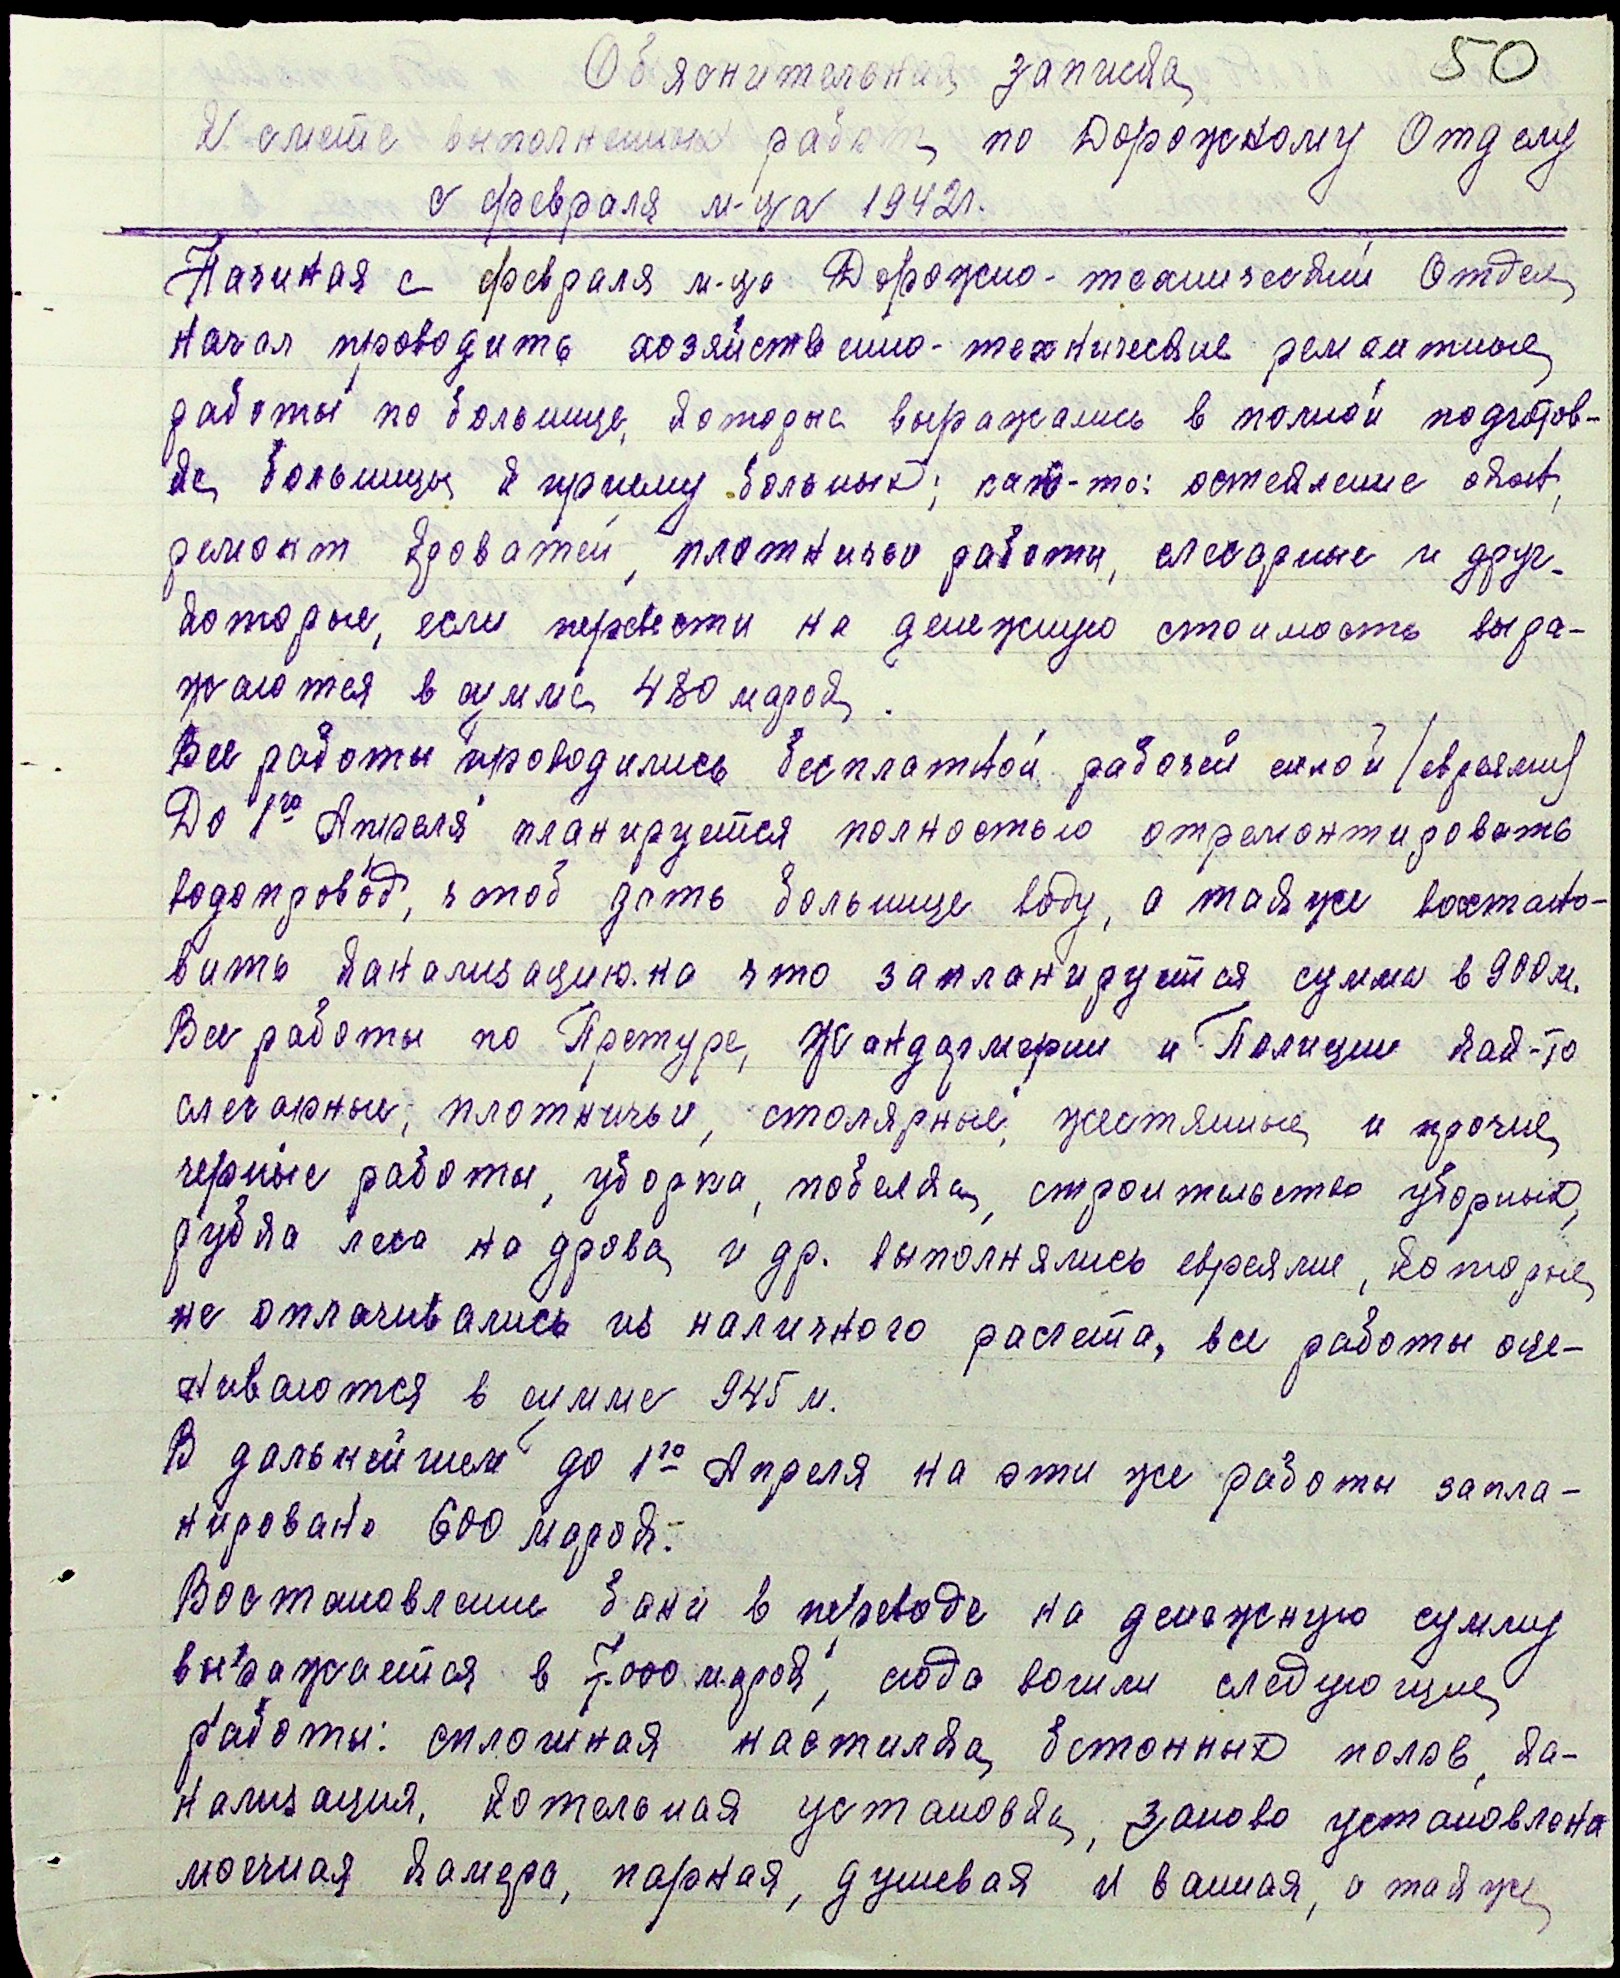 50
Обяснительная записка
К смете выполненных работ, по Дорожному Отделу
с февраля м-ца 1942г.
Начиная с февраля м-ца Дорожно-технический Отдел
начал проводить хозяйственно-технические ремонтные
работы по больнице, которые выражались в полной подготов-
ке больницы к приему больных; как-то: остекление окон,
ремонт кроватей, плотничьи работы, слесарные и друг.
которые, если перевести на денежную стоимость выра-
жаются в сумме 480 марок.
Все работы проводились бесплатной рабочей силой /евреями/
До 1го Апреля планируется полностью отремонтировать
водопровод, чтоб дать больнице воду, а также востано-
вить канализацию. на что запланируется сумма в 900 м.
Все работы по Претуре, Жандармерии и Полиции как-то
слесарные, плотничьи, столярные, жестянные и прочие
черные работы, уборка, побелка, строительство уборных,
рубка леса на дрова и др. выполнялись евреями, которые
не оплачивались из наличного расчета, все работы оце-
ниваются в сумме 945 м.
В дальнейшем до 1го Апреля на эти же работы запла-
нировано 600 марок.
Востановление бани в переводе на денежную сумму
выражается в 7.000 марок, сюда вошли следующие
работы: сплошная настилка бетонных полов, ка-
нализация, котельная установка, заново установлена
моечная камера, парная, душевая и ванная, а также